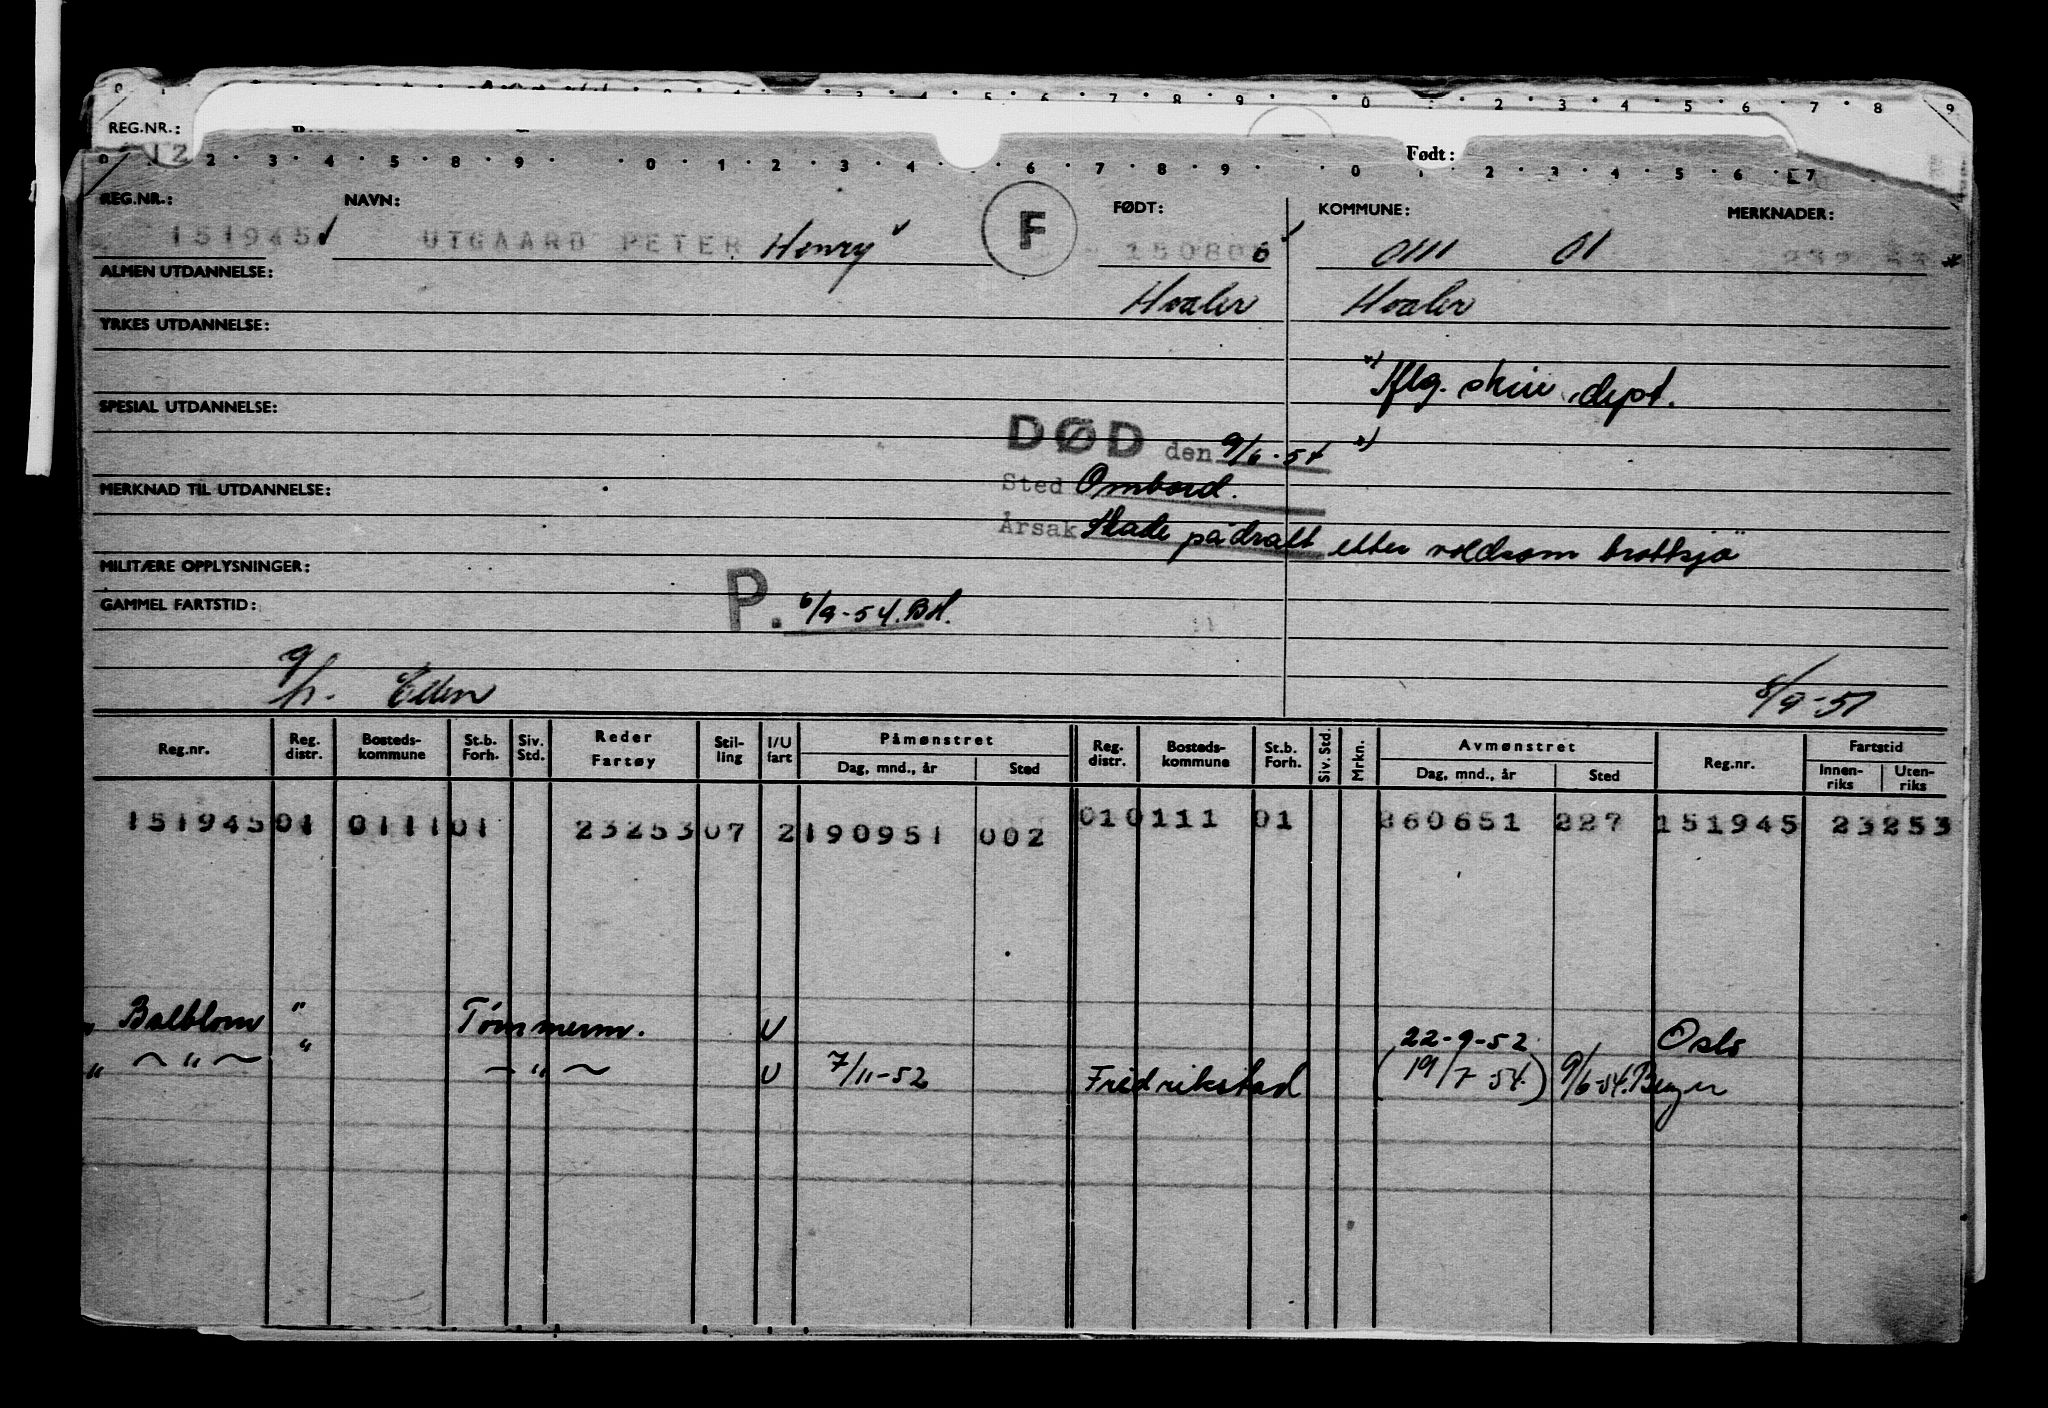 REG.NR.:
Født:
REG.NR.: NAVN: FØDT: KOMMUNE: MERKNADER:
151945 UTGAARD PETER Henry F 0111 01
ALMEN UTDANNELSE: Hvaler Hvaler
YRKES UTDANNELSE:
x) Iflg. skriv. dept.
SPESIAL UTDANNELSE:
DØD den 9/6-54 x)
MERKNAD TIL UTDANNELSE: Sted Ombord.
Årsak Skade pådratt etter voldsom brottsjø
MILITÆRE OPPLYSNINGER:
GAMMEL FARTSTID: P. 6/9-54. BH.
g/h. Ellen 8/9-51
Reg.nr. Reg. distr. Bosteds- kommune St.b. Forh. Siv. Std. Reder Fartøy Stil- ling I/U fart Påmønstret Dag, mnd., år Sted Reg. distr. Bosteds- kommune St.b. Forh. Siv. Std. Mrkn. Avmønstret Dag, mnd., år Sted Reg.nr. Fartstid Innen- riks Uten- riks
151945 01 0111 01 23253 07 2 190951 002 01 0111 01 260651 227 151945 23253
" Balblom " Tømmerm. U 22-9-52 Oslo
" — " — " — " — U 7/11-52 Fredrikstad (19/7-54.) 9/6-54.